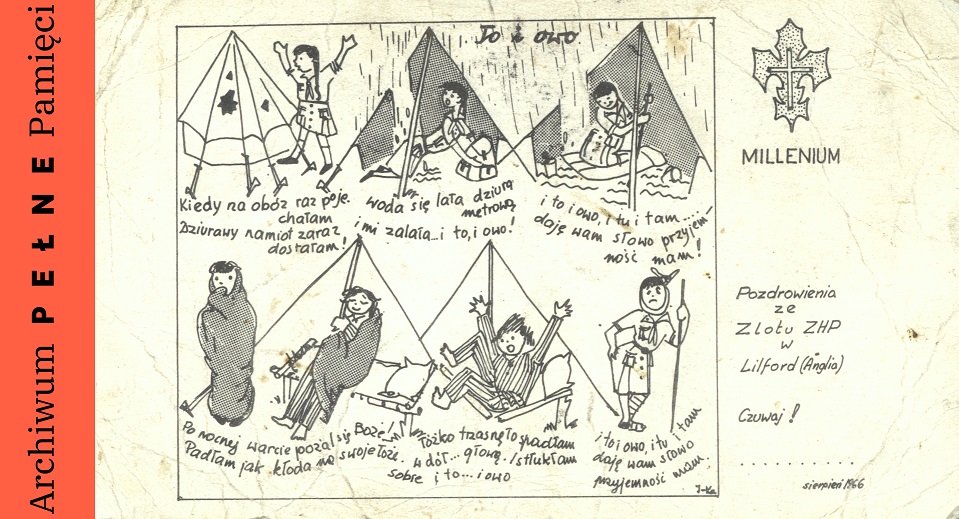 Archiwum PEŁNE Pamięci
To i owo
Kiedy na obóz raz poje-
chałam
Dziurawy namiot zaraz
dostałam!
Woda się lała dziurą
metrową,
i mi zalała... i to, i owo!
i to i owo, i tu i tam....
daję wam słowo przyjem-
ność mam!
Po nocnej warcie pożal się Boże!
Padłam jak kłoda na swoje łoże.
Łóżko trzasnęło spadłam
w dół... głową. I stłukłam
sobie i to... i owo
i to i owo, i tu i tam
daję wam słowo
przyjemność mam.
J-Ka
MILLENIUM
Pozdrowienia
ze
Zlotu ZHP
w
Lilford (Anglia)
Czuwaj!
sierpień 1966